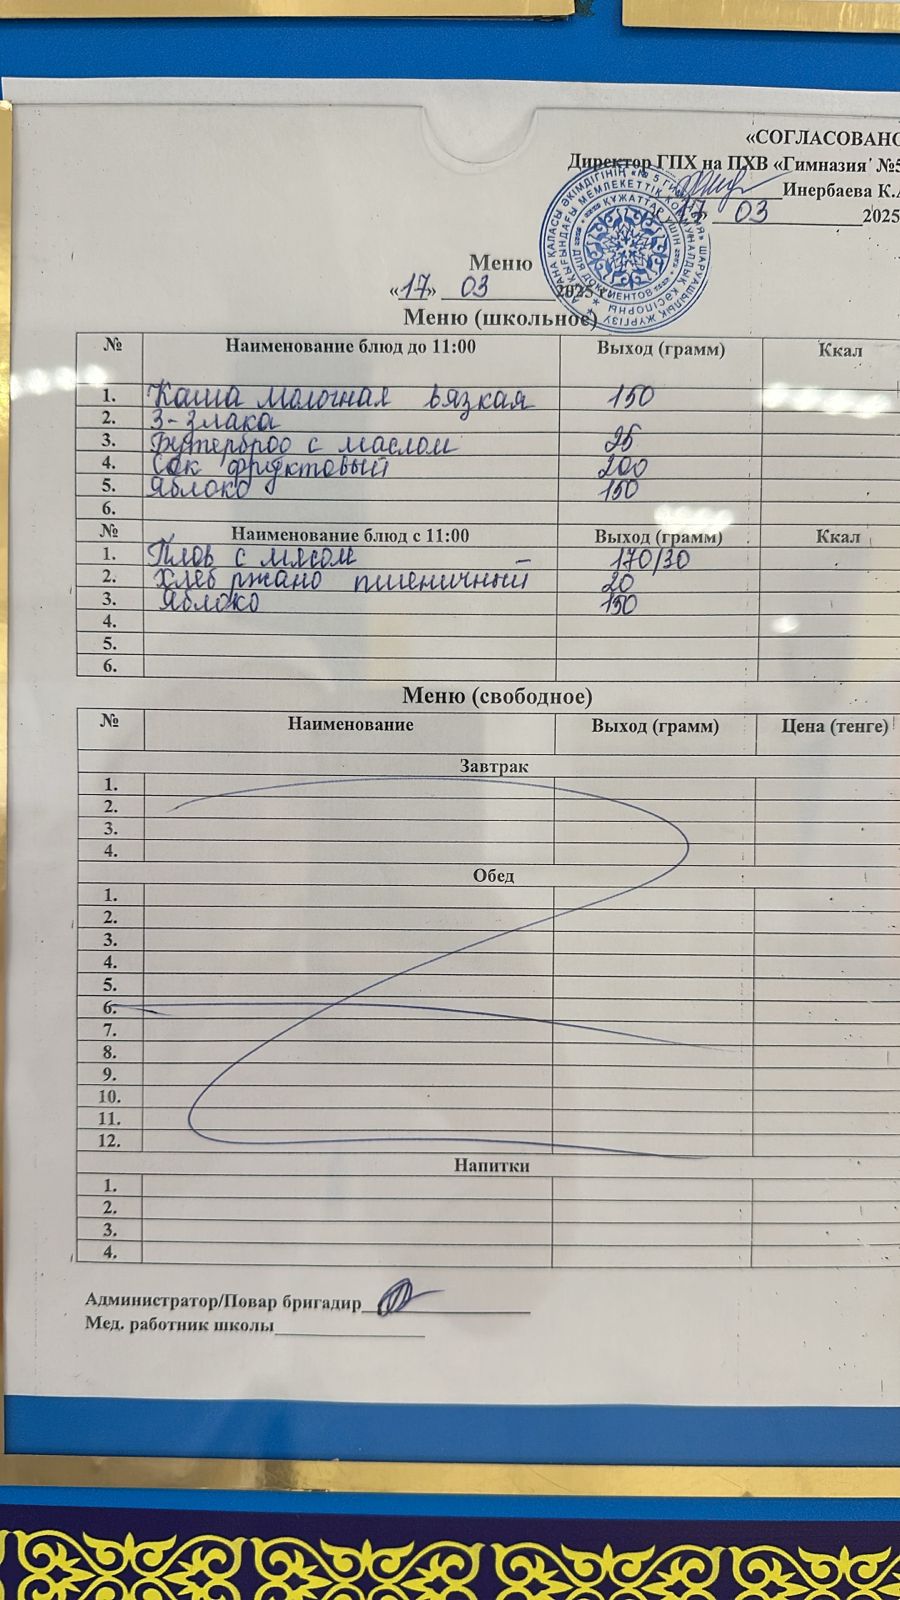 «СОГЛАСОВАНО
Директор ГПХ на ПХВ «Гимназия №5
Инербаева К.А
17» 03 2025
Меню
«17» 03 2025 г
Меню (школьное)
№ Наименование блюд до 11:00 Выход (грамм) Ккал
1. Каша молочная вязкая 150
2. 3-злака
3. Бутерброд с маслом 25
4. Сок фруктовый 200
5. Яблоко 150
6.
№ Наименование блюд с 11:00 Выход (грамм) Ккал
1. Плов с мясом 170/30
2. Хлеб ржано пшеничный 20
3. Яблоко 150
4.
5.
6.
Меню (свободное)
№ Наименование Выход (грамм) Цена (тенге)
Завтрак
1.
2.
3.
4.
Обед
1.
2.
3.
4.
5.
6.
7.
8.
9.
10.
11.
12.
Напитки
1.
2.
3.
4.
Администратор/Повар бригадир
Мед. работник школы